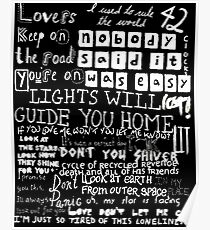 Lovers I used to rule the world 42
Keep on nobody
the road said it
You're on was easy
CLOCKS
LIGHTS WILL
GUIDE YOU HOME
IF YOU LOVE ME WON'T YOU LET ME KNOW
LOOK AT
THE STARS
LOOK HOW
THEY SHINE
FOR YOU
DON'T YOU SHIVER
cycle of recycled revenge
death and all of his friends
I promise
you this
I'll always
look out for you
Don't
Panic
LOOK AT EARTH
FROM OUTER SPACE
IN MY
PLACE
oh, my star is fading
LOVE DON'T LET ME GO
I'M JUST SO TIRED OF THIS LONELINESS